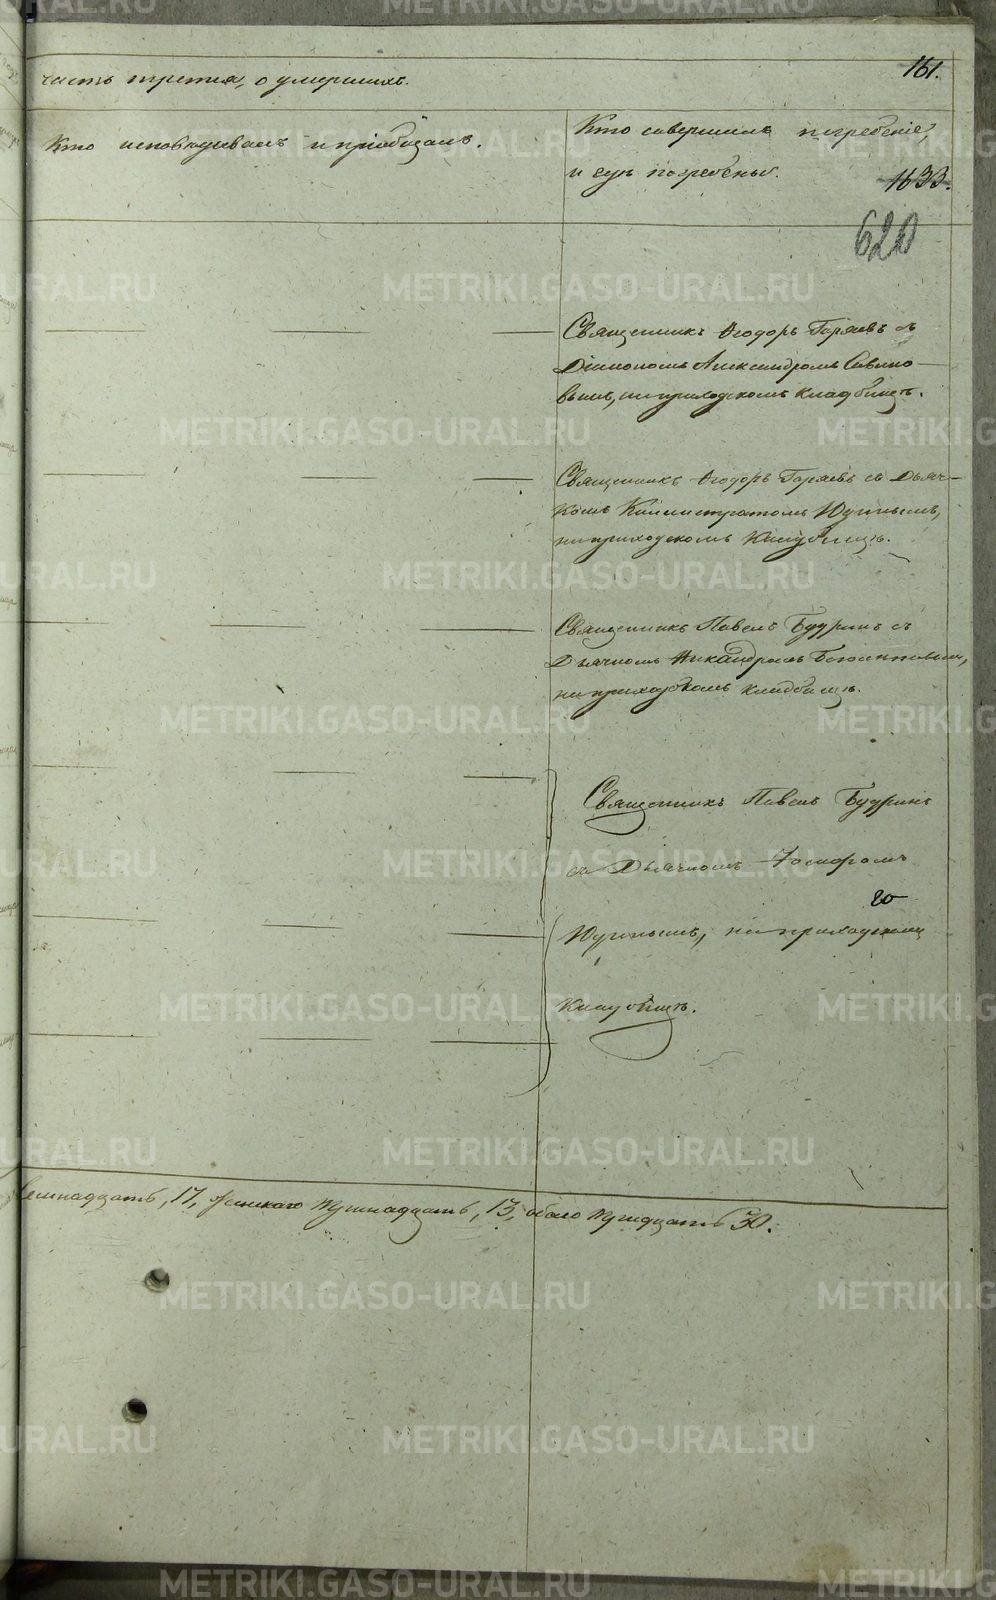 161.
часть третія, о умершихъ.
Кто исповѣдывалъ и пріобщалъ.
Кто совершалъ погребеніе,
и гдѣ погребены.
1633.
620
Священникъ Ѳеодоръ Горяевъ съ
Діакономъ Александромъ
на приходскомъ кладбищѣ.
Священникъ Ѳеодоръ Горяевъ съ Дьяч-
комъ Каллистратомъ
на приходскомъ кладбищѣ.
Священникъ Павелъ Будринъ съ
Дьячкомъ
на приходскомъ кладбищѣ.
Священникъ Павелъ Будринъ
съ Дьячкомъ
на приходскомъ
кладбищѣ.
17, женскаго тринадцать, 13, обоего тридцать 30.
METRIKI.GASO-URAL.RU